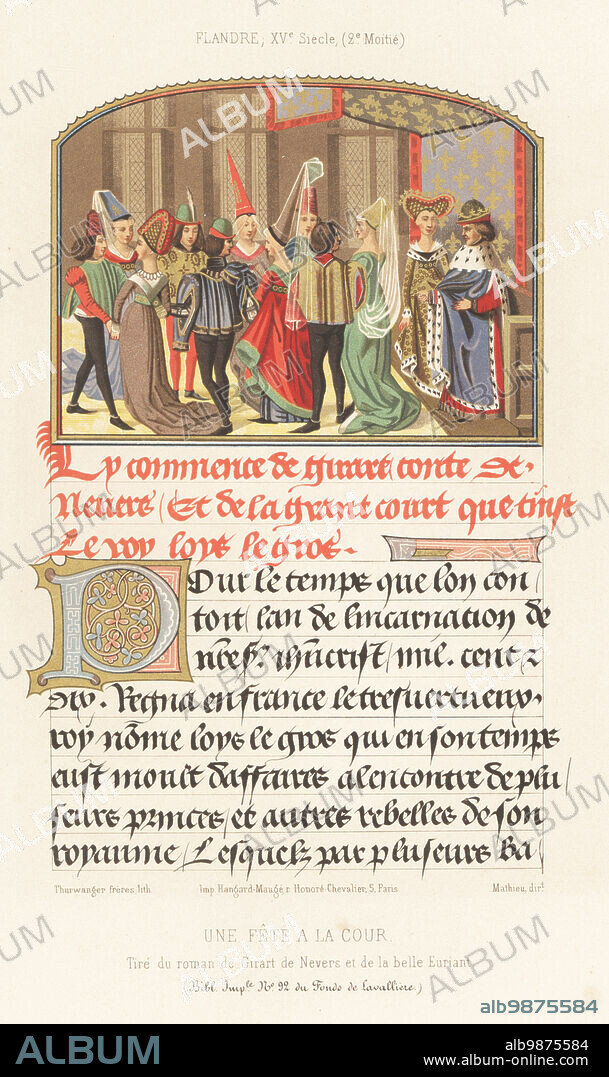 FLANDRE, XVe Siècle, (2e Moitié)
Cy commence de girart conte de
Nevers / Et de la grant court que tinst
Le roy loys le gros.
Pour le temps que lon con /
toit / lan de lincarnation de
nre sr. ihucrist / mil. cent z
dix. Regna en france le tresvertueux.
roy nōme loys le gros qui en son temps
eust moult daffaires a lencontre de plu /
seurs princes / et autres rebelles de son
royaume / Lesquelz par pluseurs ba
Thurwanger frères, lith.
Imp. Hangard-Maugé, r. Honoré-Chevalier, 5, Paris
Mathieu, dirt.
UNE FÊTE A LA COUR.
Tiré du roman de Girart de Nevers et de la belle Euriant
(Bibl. Imple No 92 du Fonds de Lavallière.)
alb9875584
ALBUM
alb9875584
www.album-online.com